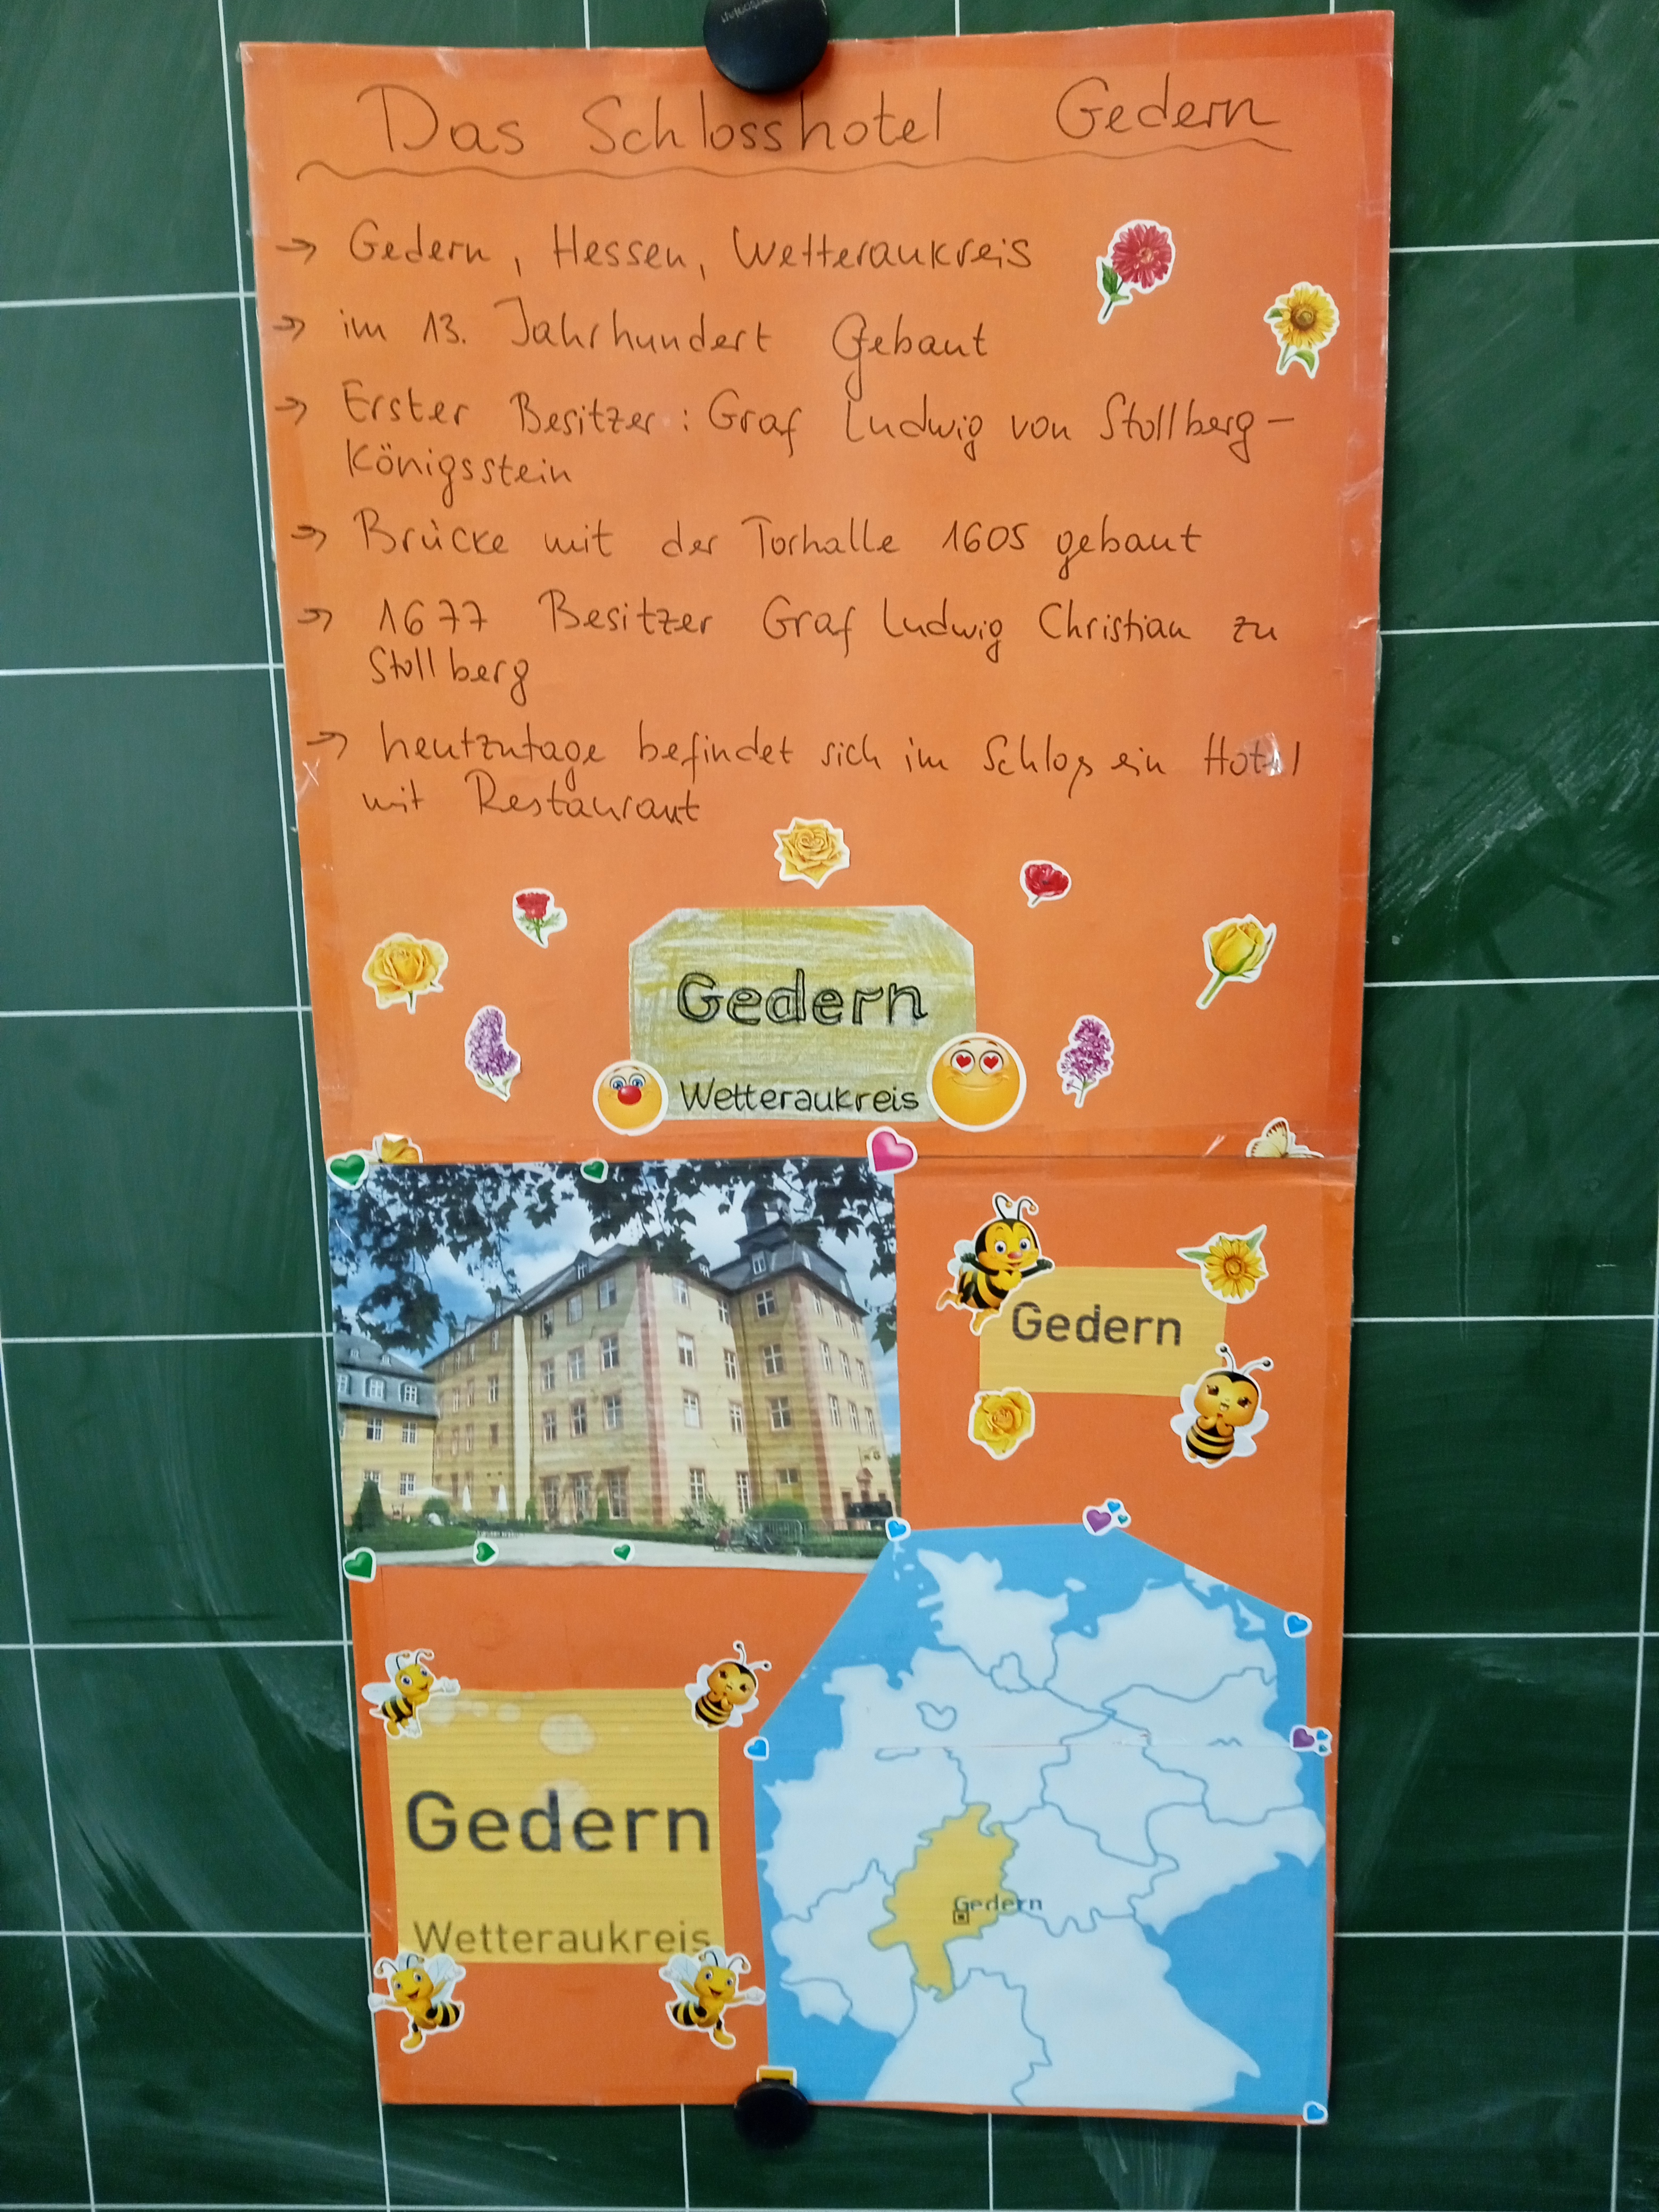 Das Schlosshotel Gedern
→ Gedern, Hessen, Wetteraukreis
→ im 13. Jahrhundert Gebaut
→ Erster Besitzer: Graf Ludwig von Stollberg-
Königsstein
→ Brücke mit der Torhalle 1605 gebaut
→ 1677 Besitzer Graf Ludwig Christian zu
Stollberg
→ heutzutage befindet sich im Schloß ein Hotel
mit Restaurant
Gedern
Wetteraukreis
Gedern
Gedern
Wetteraukreis
Gedern